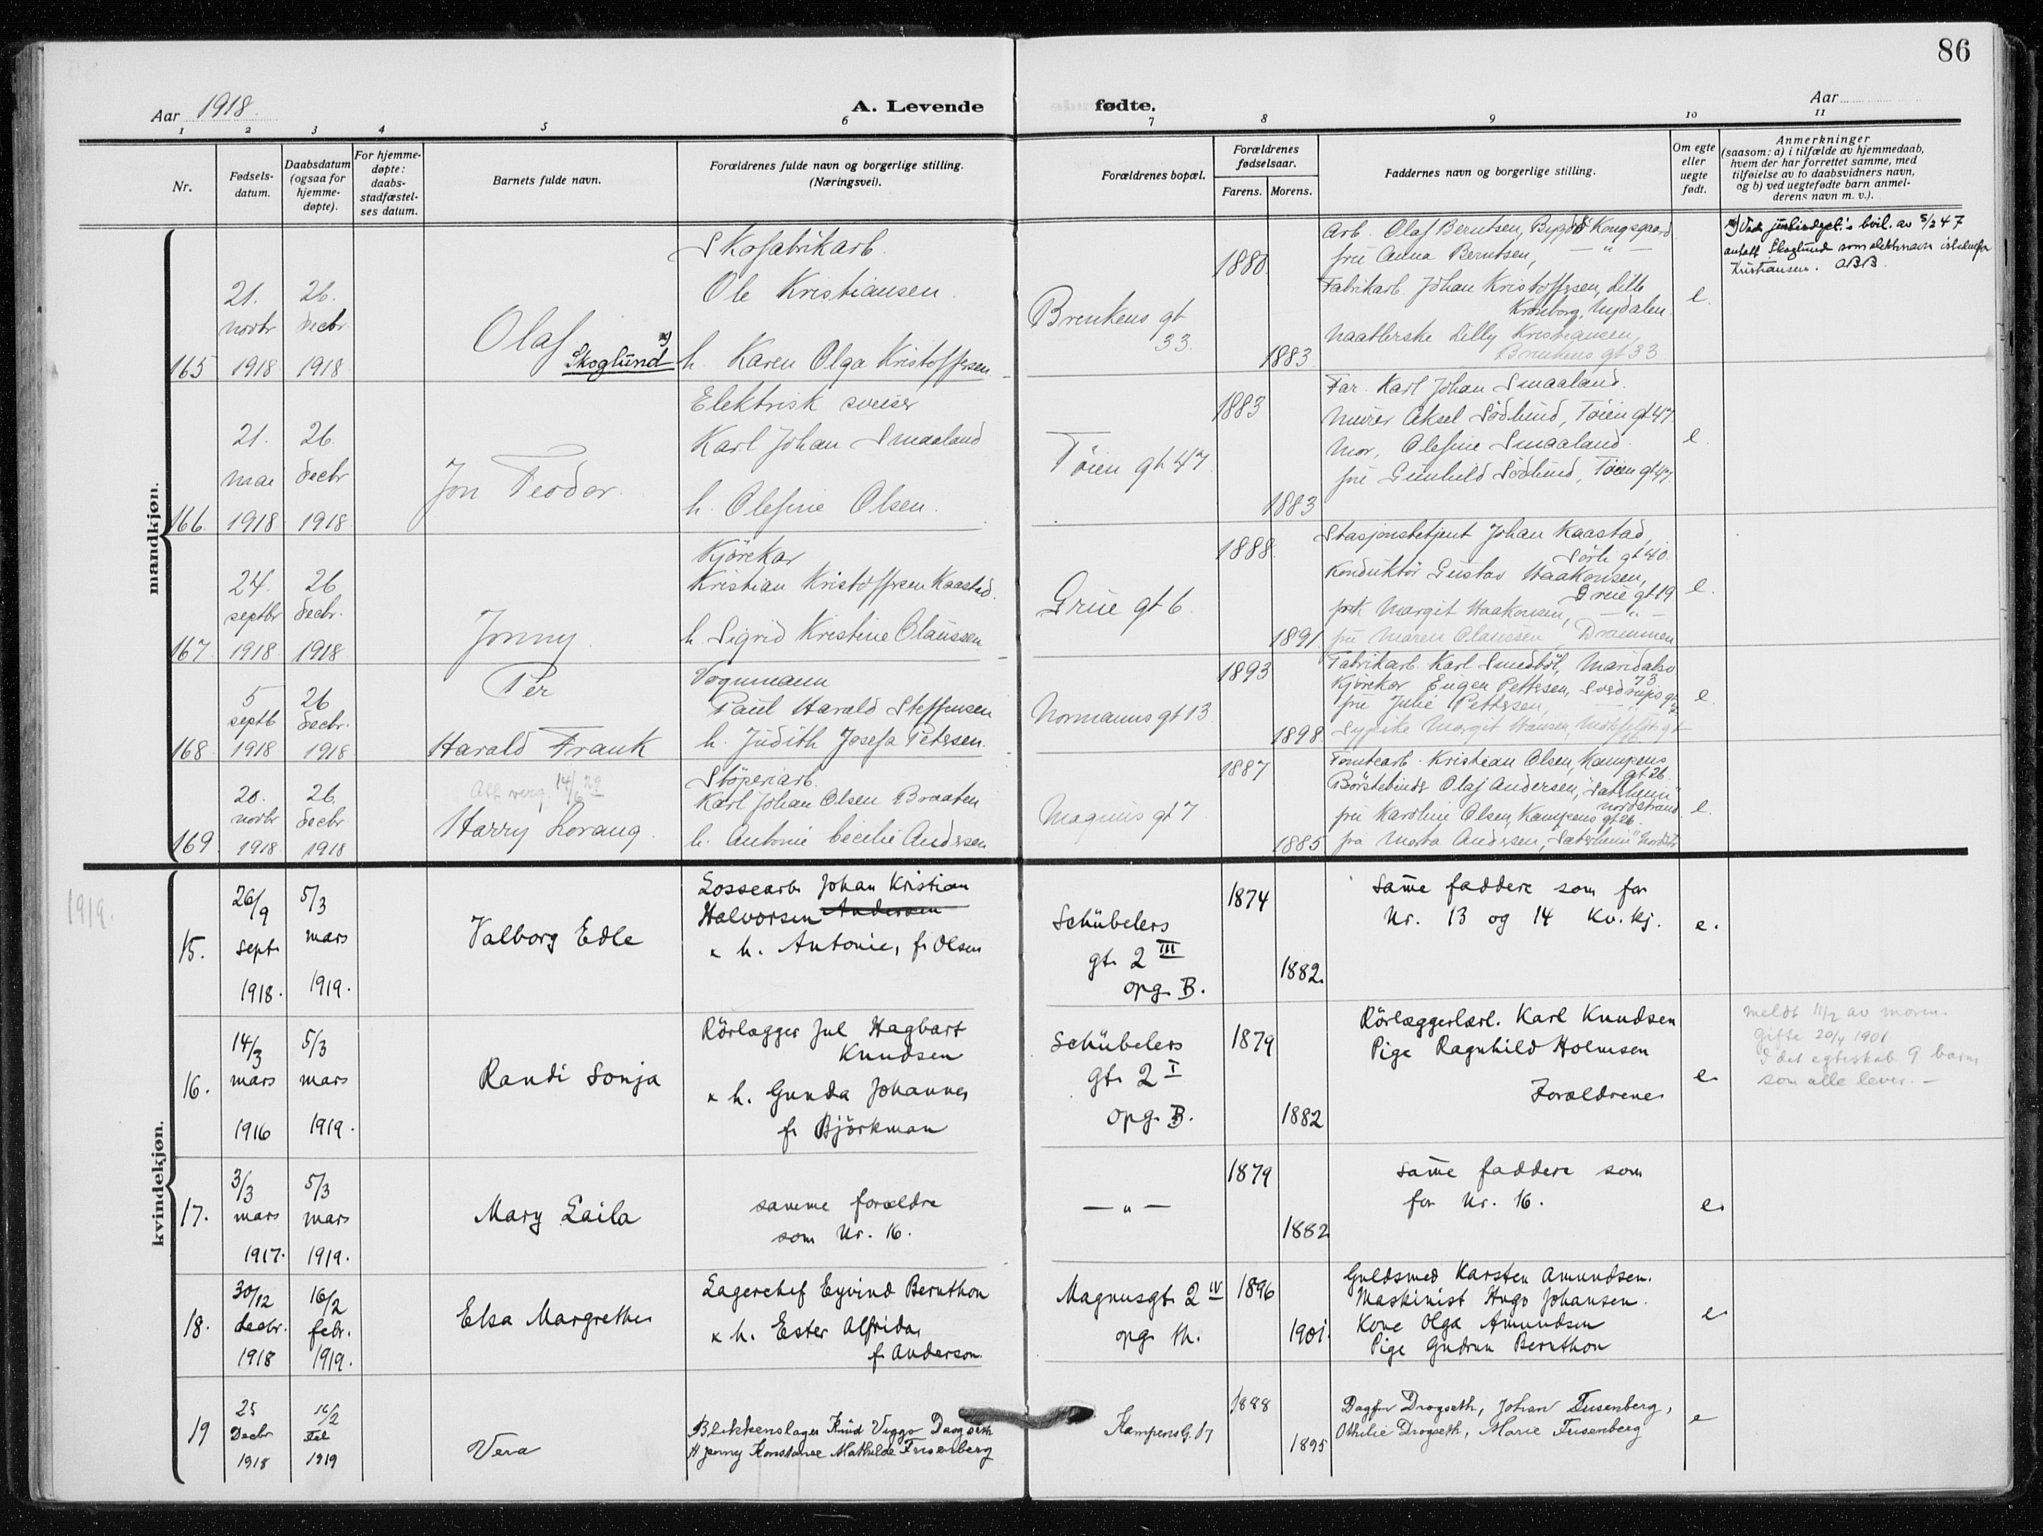 86
Aar 1918.
A. Levende fødte.
Aar
1 2 3 4 5 6 7 8 9 10 11
Nr.
Fødsels-
datum.
Daabsdatum
(ogsaa for
hjemme-
døpte).
For hjemme-
døpte:
daabs-
stadfæstel-
ses datum.
Barnets fulde navn.
Forældrenes fulde navn og borgerlige stilling.
(Næringsvei).
Forældrenes bopæl.
Forældrenes
fødselsaar.
Farens. Morens.
Faddernes navn og borgerlige stilling.
Om egte
eller
uegte
født.
Anmerkninger
(saasom: a) i tilfælde av hjemmedaab,
hvem der har forrettet samme, med
tilføielse av to daabsvidners navn,
og b) ved uegtefødte barn anmel-
derens navn m. v.).
mandkjøn.
165
21.
novbr
1918
26.
decbr
1918
Olaf
Skoglund
Skofabrikarb.
Ole Kristiansen.
h. Karen Olga Kristoffersen
Brenkens gt
33.
1880
1883
Arb. Olaf Berntsen, Bygdö Kongsgaard
frue Anna Berntsen, — " —
Fabrikarb. Johan Kristoffersen, Lille
Kronborg, Nydalen.
Lilly Kristiansen,
Brenkens gt 33
e.
bevil. av 5/2 47
antatt Skoglund som slektsnavn istedenfor
Kristiansen. OBB.
166.
21.
mai
1918
26.
decbr
1918
Jon Teodor.
Elektrisk sveiser
Karl Johan Smaaland
h. Olefine Olsen.
Töien gt 47.
1883
1883
Far. Karl Johan Smaaland.
Murer Aksel Södlund, Töien gt 47.
Mor, Olefine Smaaland.
frue Gunhild Södlund, Töien gt 47.
e.
167.
24.
septbr
1918
26
decbr.
1918
Jonny.
Kjörekar
Kristian Kristoffersen Kaastad.
h. Sigrid Kristine Claussen
Grüe gt 6.
1888.
1891.
Stasjonsbetjent Johan Kaastad,
Sörli gt 40.
Konduktör Gustav Haakonsen,
Grüe gt 19
frk Margit Haakonsen, — " —
frue Maren Claussen, Drammen
e.
168
5
septb
1918
26
decbr.
1918
Per
Harald Frank
Vognmann
Paul Harald Steffensen
h. Judith Josefa Petersen.
Normanns gt 13
1893
1898
Fabrikarb. Karl Smedböl, Maridalsv
73
Kjörekar Eugen Pettersen, Sverdrups gt
frue Julie Pettersen,
Sypike Margit Hansen,
e.
169.
20.
novbr
1918
26.
decbr
1918
Att verg. 14/6 29
Harry Lorang.
Stöperiarb.
Karl Johan Olsen Braaten
h. Antonie Cecilie Andersen
Magnus gt 7.
1887
1885
Tomtearb. Kristian Olsen, Kampens
gt 26.
Börstebinder Olaf Andersen, "Sætrheim"
Nordstrand.
frue Karoline Olsen, Kampens gt 26.
fru Marta Andersen, "Sætrheim" Nordstr.
e.
1919.
kvindekjøn.
15.
26/9
sept.
1918.
5/3
mars
1919.
Valborg Edle
Lossearb. Johan Kristian
Halvorsen Andersen
x h. Antonie, f. Olsen
Schübelers
gt. 2 III
opg. B.
1874
1882.
Same faddere som for
Nr. 13 og 14 Kv. kj.
e.
16.
14/3
mars
1916
5/3
mars
1919.
Randi Sonja
Rörlægger Jul Hagbart
Knudsen
x h. Gunda Johannes
f. Björkman
Schübelers
gt. 2 I
opg. B.
1879
1882
Rörlæggerlærl. Karl Knudsen
Pige Ragnhild Holmsen
Forældrene
e.
meldt 11/2 av moren.
Gifte 20/4 1901
I det egteskab 9 barn
som alle lever. —
17.
3/3
mars
1917.
5/3
mars
1919.
Mary Laila
samme forældre
som Nr. 16.
— " —
1879
1882
same faddere som
for Nr. 16.
e.
18.
30/12
decbr.
1918
16/2
febr.
1919.
Elsa Margrethe
Lagerchef Eyvind Bernthon
x h. Ester Alfrida,
f. Anderson
Magnusgt. 2 IV
opg. th.
1896
1901.
Guldsmed Karsten Amundsen.
Maskinist Hugo Johansen.
Kone Olga Amundsen
Pige Gudrun Bernthon
e.
19
25
Decbr
1918
16/2
Feb
1919
Vera
Blikkenslager Knud Viggo Drogseth
H Jenny Konstance Mathilde Frisenberg
Kampens G. 17
1888
1895
Dagfin Drogseth, Johan Frisenberg,
Othilie Drogseth, Marie Frisenberg
e